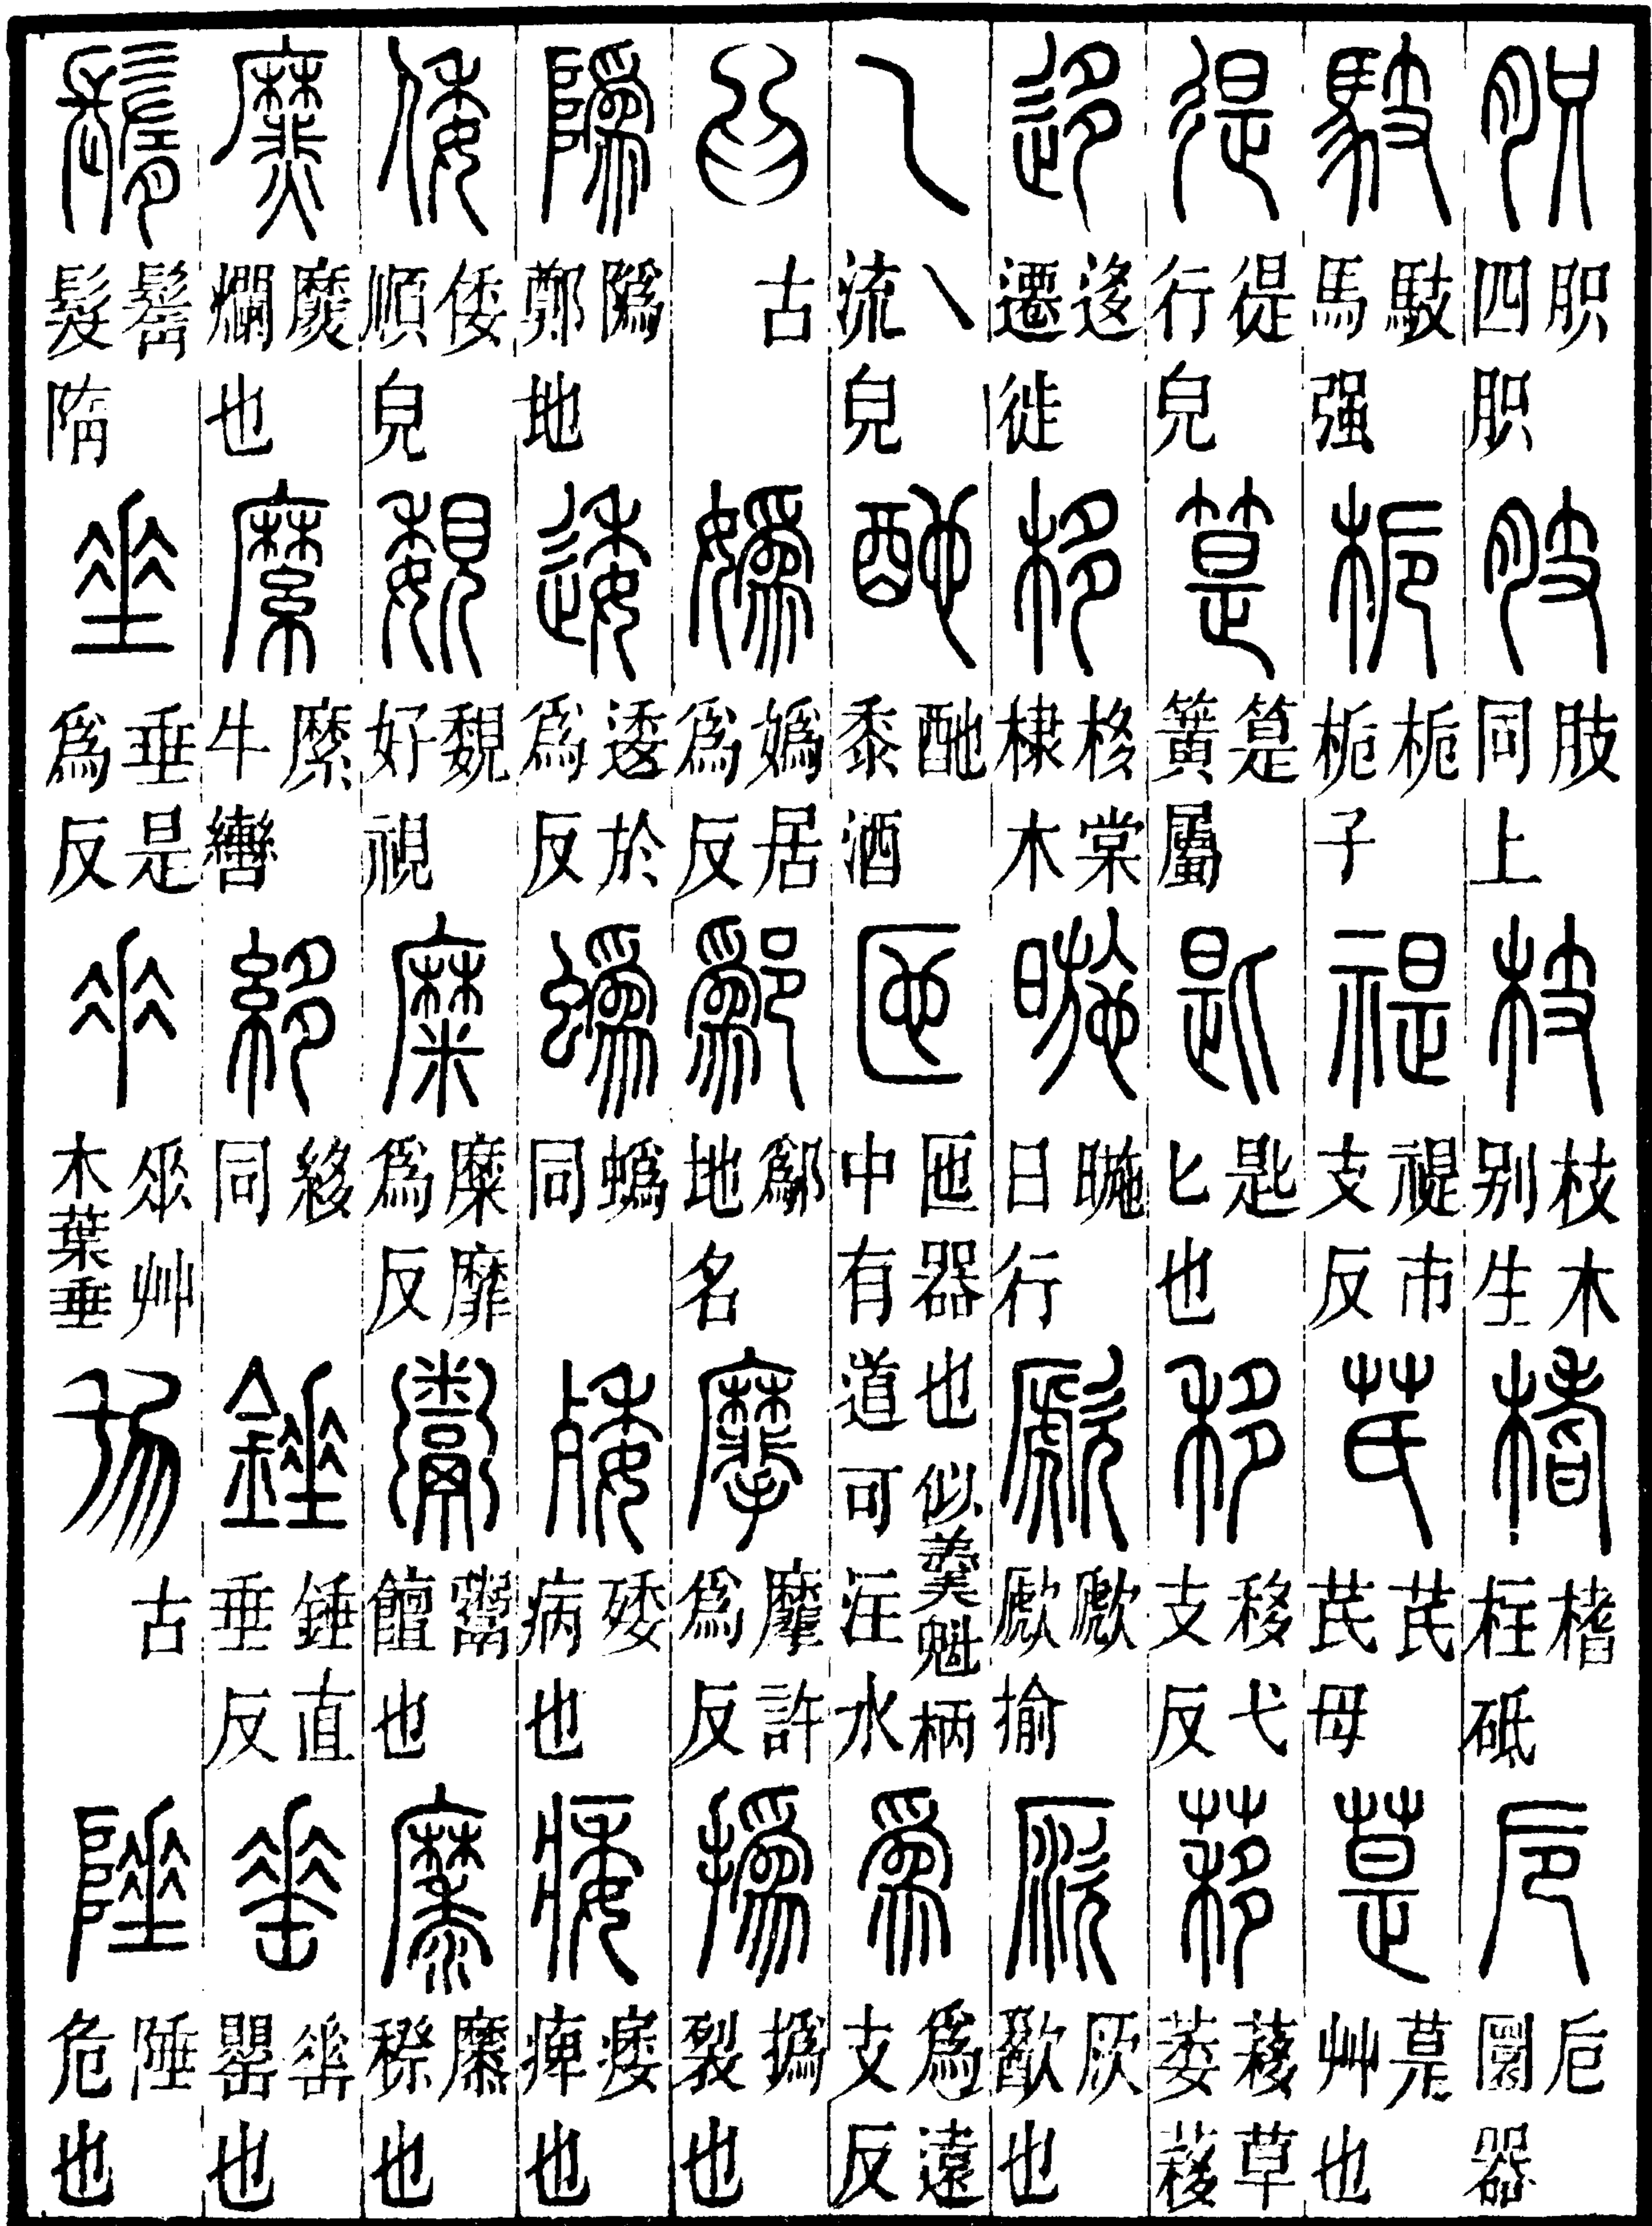 胑 胑四胑 肢 肢同上 枝 枝木别生 榰 榰柱砥 卮 卮圜器
馶 馶馬强 梔 梔梔子 禔 禔市支反 芪 芪芪母 䓳 䓳艸也
徥 徥行皃 䈕 䈕簧屬 匙 匙匕也 移 移弋支反 䔟 䔟萎䔟草
迻 迻遷徙 栘 栘棠棣木 暆 暆日行 歋 歋歋揄 歠也
乁 乁流皃 酏 酏黍酒 匜 匜器也似羹魁柄中有道可注水 爲 爲遠支反
古 嬀 嬀居爲反 鄬 鄬地名 麾 麾許爲反 撝 撝裂也
䧦 䧦鄭地 逶 逶於爲反 蟡 蟡同 㱧 㱧病也 痿 痿痺也
倭 倭順皃 覣 覣好視 糜 糜靡爲反 鬻 鬻饘也 穈 穈穄也
爢 爢爛也 縻 縻牛轡 同 錘 錘直垂反 罌也
鬌 鬌髮隋 垂 垂是爲反 𠂹 𠂹艸木葉垂 古 陲 陲危也